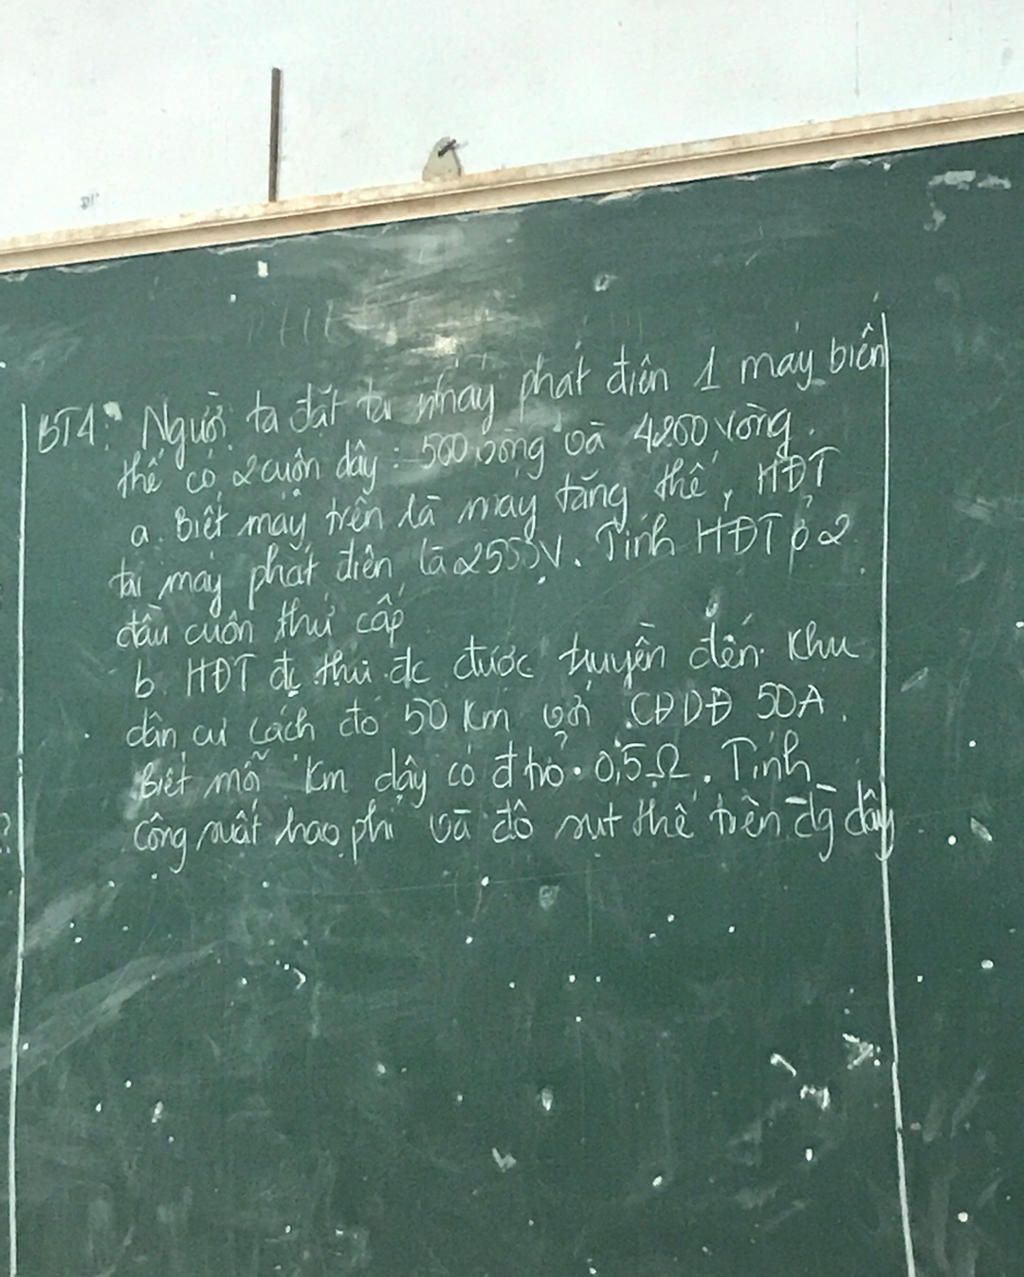 BT4: Người ta đặt tại nhày phát điện 1 máy biến
thế có 2 cuộn dây : 500 vòng và 4200 vòng.
a. Biết máy trên là máy tăng thế, HĐT
tại máy phát điện là 2550V. Tính HĐT ở 2
đầu cuộn thứ cấp
b. HĐT đc thứ đc được truyền đến khu
dân cư cách đó 50 Km với CĐDĐ 50A.
Biết mỗi Km dây có đ trở 0,5Ω. Tính
công suất hao phí và độ sụt thế trên đg dây